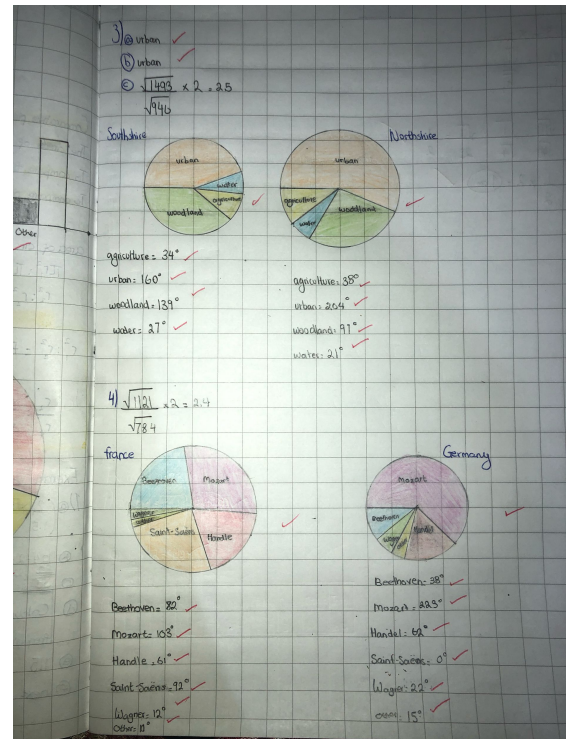 3) a urban
b urban
c √1493 / √940 × 2 = 25
Southshire
Northshire
urban
water
agriculture
woodland
urban
agriculture
water
woodland
Other
agriculture = 34°
urban = 160°
woodland = 139°
water = 27°
agriculture = 38°
urban = 204°
woodland = 97°
water = 21°
4) √1121 / √784 × 2 = 2.4
france
Germany
Beethoven
Mozart
Wagner
Saint-Saëns
Handle
Mozart
Beethoven
Wagner
other
Handel
Beethoven = 82°
Mozart = 103°
Handle = 61°
Saint-Saëns = 92°
Wagner = 12°
Other = 11°
Beethoven = 38°
Mozart = 223°
Handel = 62°
Saint-Saëns = 0°
Wagner = 22°
other = 15°